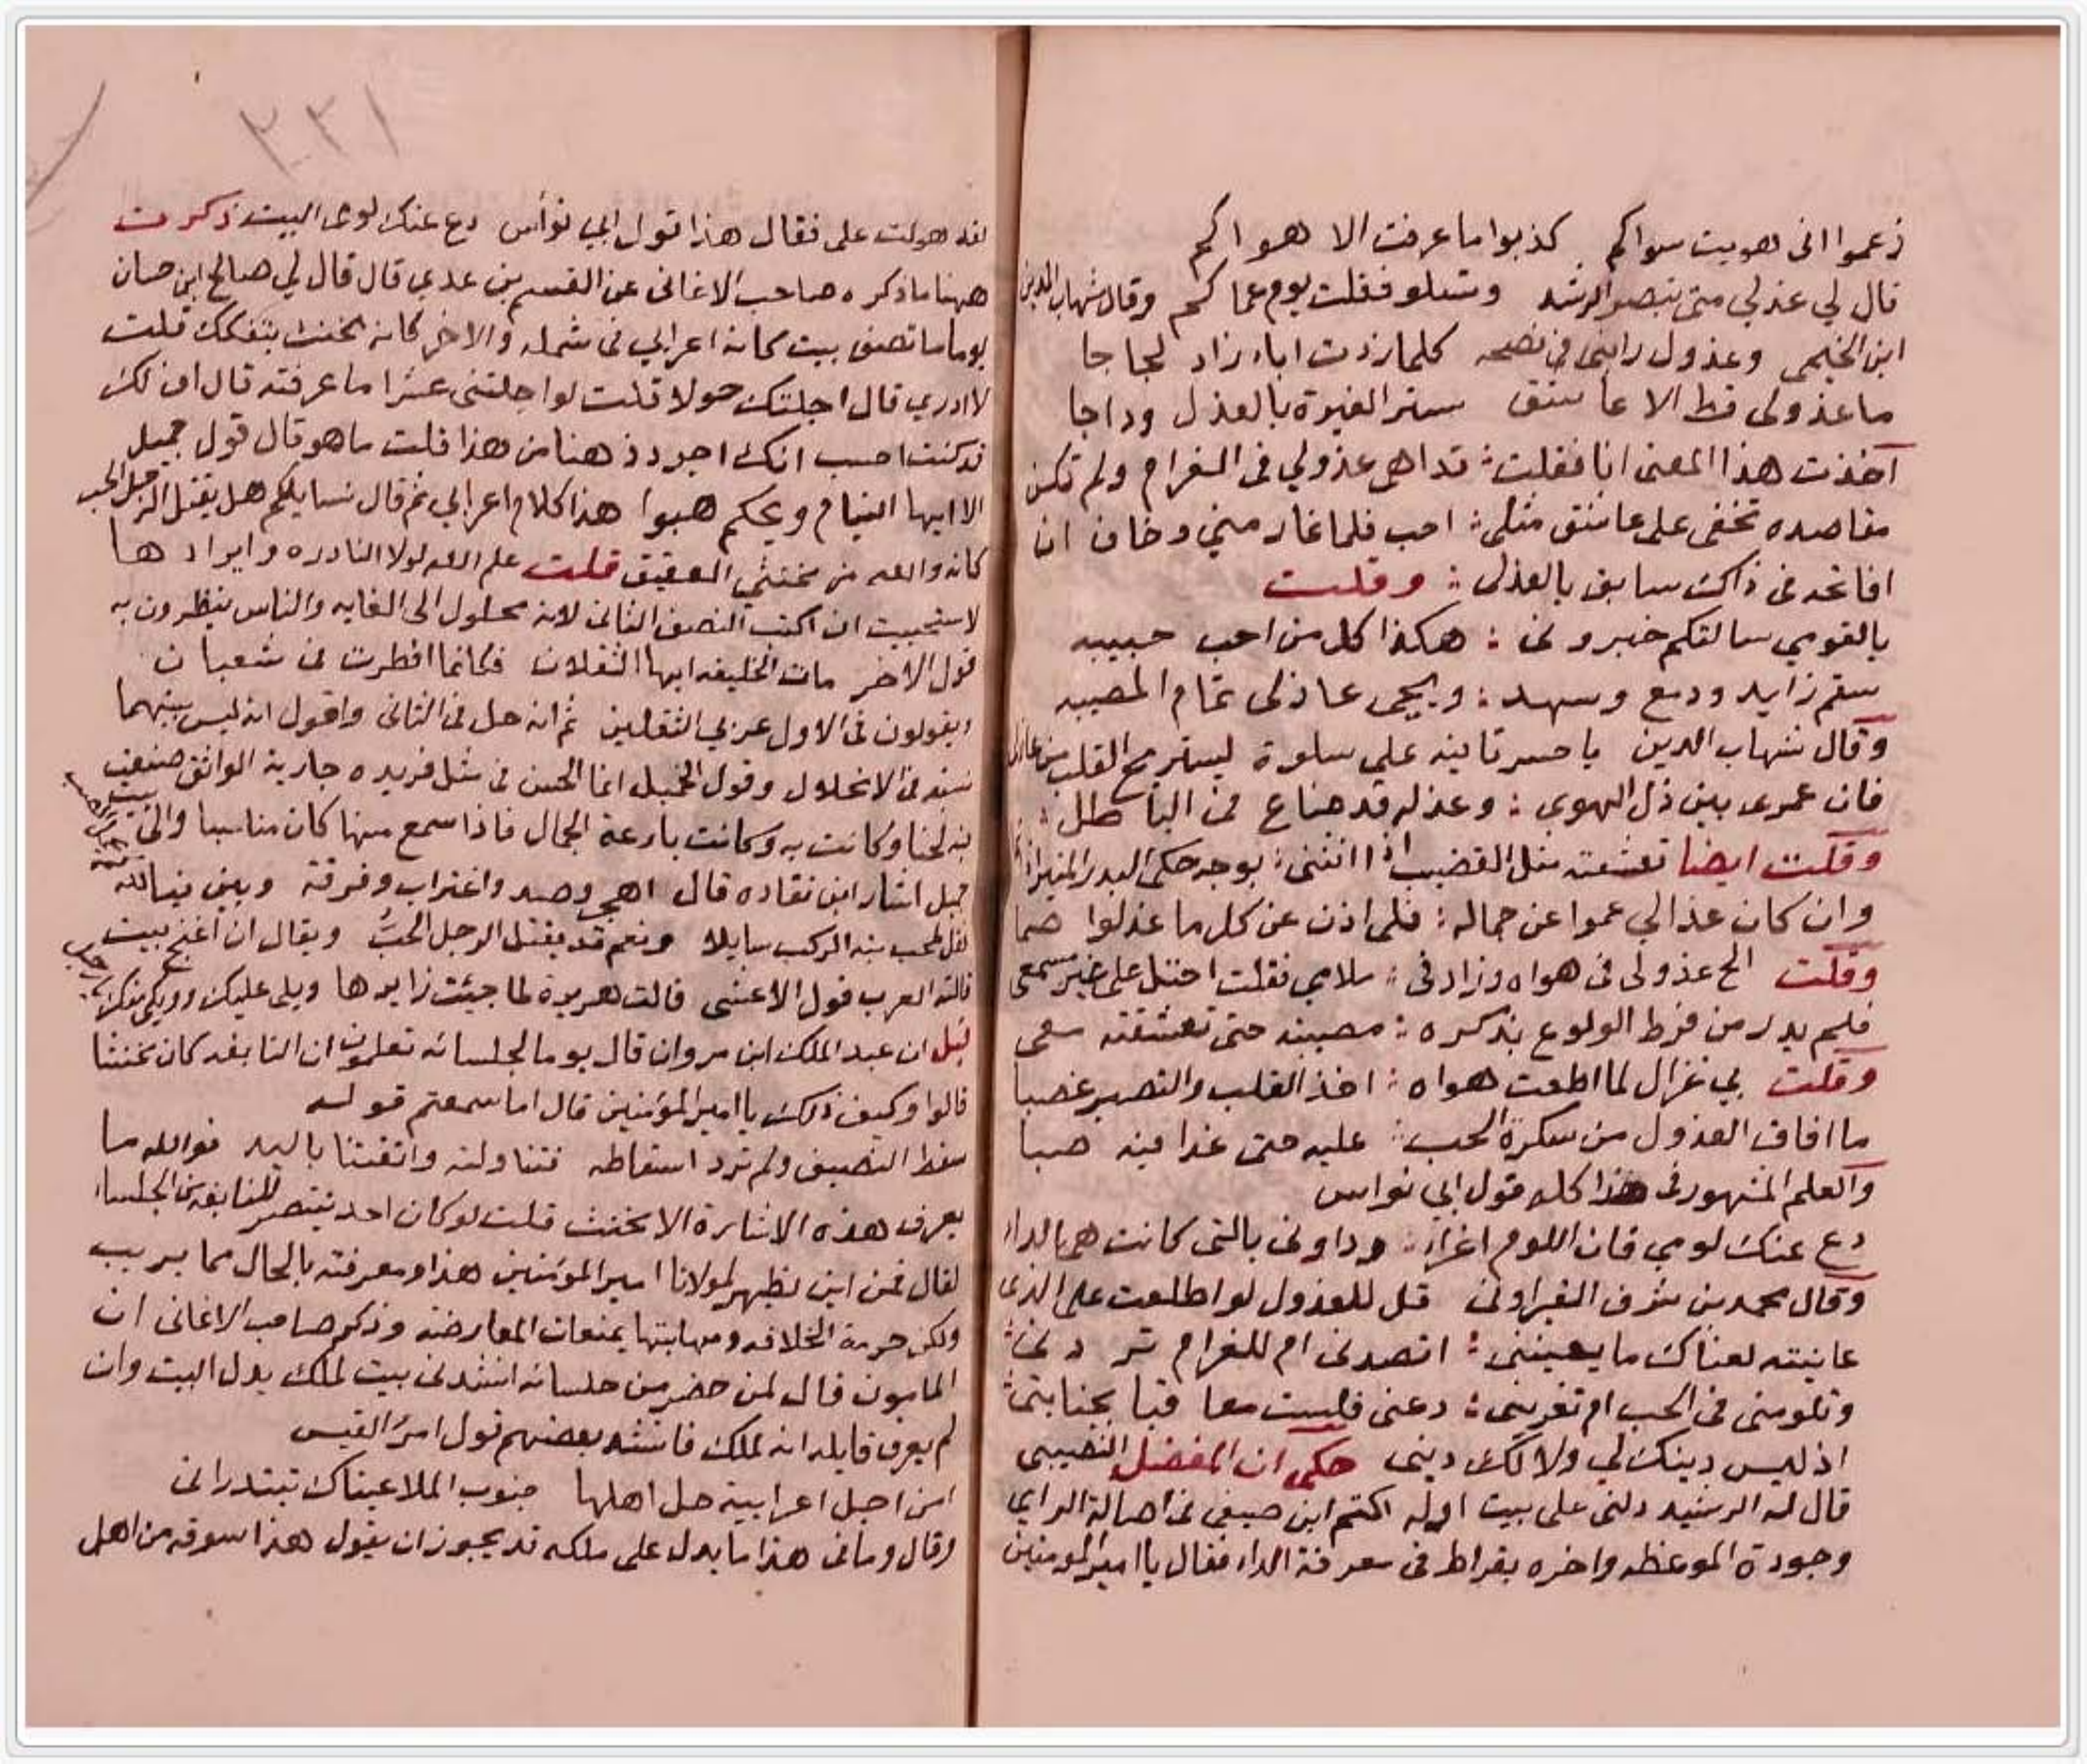 زعموا انى هويت سواكم كذبوا ما عرفت الا هواكم
قال لي عذلي متى تبصر الرشد وتسلو فقلت يوم عماكم وقال شهاب الدين
ابن الخيمى وعذول رابنى فى نصحه كلما زدت اباء زاد لجاجا
ما عذولى قط الا عاشق ستر الغيرة بالعذل وداجا
اخذت هذا المعنى انا فقلت قد اهى عذولي فى الغرام ولم تكن
مقاصده تخفى على عاشق مثلى احب فلما غار منى وخاف ان
افاتحه فى ذاك سابق بالعذل وقلت
يا لقومي سالتكم خبرونى هكذا كل من احب حبيبه
سقم زايد ودمع وسهد ويجى عاذلى تمام المصيبه
وقال شهاب الدين يا حسرتا ينه على سلوة ليستريح القلب من عاذلى
فان عمرى بين ذل الهوى وعذله قد ضاع فى الباطل
وقلت ايضا تعشقته مثل القضيب اذا انثنى بوجه حكى البدر المنير اذا
وان كان عذالي عموا عن جماله فلى اذن عن كل ما عذلوا صما
وقلت الح عذولى فى هواه وزاد فى ملامي فقلت احتل على غير مسمعى
فلم يدر من فرط الولوع بذكره مصيبته حتى تعشقته معى
وقلت بي غزال لما اطعت هواه اخذ القلب والتصبر غصبا
ما افاق العذول من سكرة الحب عليه حتى غدا فيه صبا
والعلم المشهور فى هذا كله قول ابي نواس
دع عنك لومي فان اللوم اغراء وداونى بالتى كانت هى الداء
وقال محمد بن شرف القيراونى قل للعذول لو اطلعت على الذى
عاينته لعناك ما يعنينى اتصدنى ام للغرام تردنى
وتلومنى فى الحب ام تغرينى دعنى فلست معاقبا بجنايتى
اذ ليس دينك لي ولا لك دينى حكى ان المفضل الضبي
قال له الرشيد دلنى على بيت اوله اكثم ابن صيفى فى اصالة الراي
وجودة الموعظه واخره بقراط فى معرفة الداء فقال يا امير المومنين
١٣٣
لقد هولت على فقال هذا قول ابي نوأس دع عنك لومى البيت ذكرت
ههنا ما ذكره صاحب الاغانى عن القسم بن عدي قال قال لي صالح ابن حسان
يوما ما نصف بيت كانه اعرابي فى شمله والاخر كانه مخنث يتفكك قلت
لا ادري قال اجلتك حولا قلت لو اجلتنى عشرا ما عرفته قال اف لك
قد كنت احسب انك اجود ذهنا من هذا قلت ما هو قال قول جميل
الا ايها النيام ويحكم هبوا هذا كلام اعرابي ثم قال نسايلكم هل يقتل الرجل الحب
كانه والله من مخنثي العقيق قلت علم الله لولا النادره وايرادها
لاستحييت ان اكتب النصف الثانى لانه محلول الى الغايه والناس ينظرون به
قول الاخر مات الخليفه ايها الثقلان فكانما افطرت فى شعبان
ويقولون فى الاول عزي الثقلين ثم انه حل فى الثانى واقول انه ليس بينهما
نسبه فى الانحلال وقول الخميل انما الحسن فى مثل فريده جارية الواثق صنعت
به لحنا وكانت به وكانت بارعة الجمال فاذا سمع منها كان مناسبا والى بيت
جميل اشار ابن نقاده قال اهجر وصد واغتراب وفرقة وبين
لقل لمحب بنه الركب سايلا ونعم قد يقتل الرجل الحب ويقال ان اغنج بيت
قالته العرب قول الاعشى قالت هريرة لما جيئت زايرها ويلى عليك وويلى منك
قيل ان عبد الملك ابن مروان قال يوما لجلسائه تعلمون ان النابغه كان مخنثا
قالوا وكيف ذلك يا امير المؤمنين قال اما سمعتم قوله
سقط النصيف ولم ترد اسقاطه فتناولته واتقتنا باليد فوالله ما
يعرف هذه الاشارة الا مخنث قلت لو كان احد ينتصر للنابغه من الجلسا
لقال فمن اين يظهر لمولانا امير المومنين هذا ومعرفته بالحال مما يريب
ولكن حرمة الخلافه ومهابتها يمنعان المعارضه وذكر صاحب الاغانى ان
المامون قال لمن حضر من جلسائه انشدنى بيت لملك يدل البيت وان
لم يعرف قايله انه لملك فانشد بعضهم قول امرؤ القيس
امن اجل اعرابية حل اهلها جنوب الملا عيناك تبتدرانى
وقال وما فى هذا ما يدل على ملكه قد يجوز ان يقول هذا سوقه من اهل